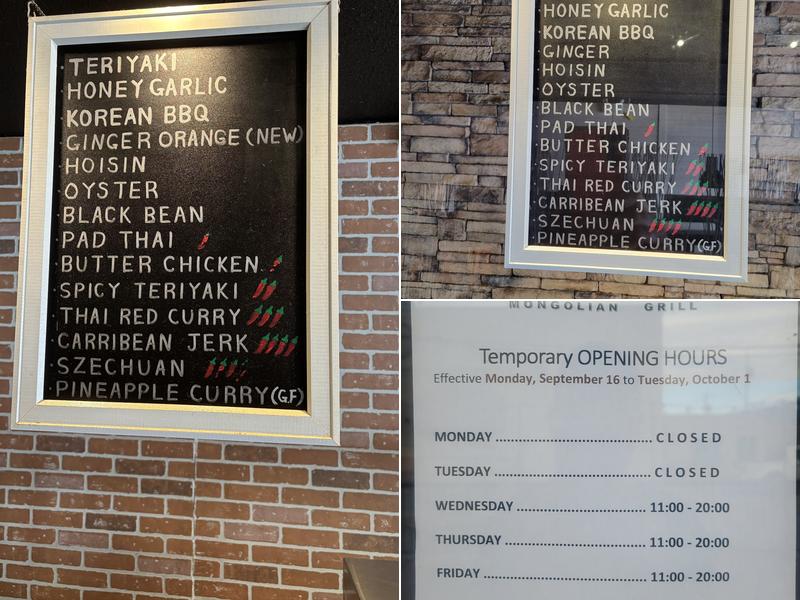 TERIYAKI
HONEY GARLIC
KOREAN BBQ
GINGER ORANGE (NEW)
HOISIN
OYSTER
BLACK BEAN
PAD THAI
BUTTER CHICKEN
SPICY TERIYAKI
THAI RED CURRY
CARRIBEAN JERK
SZECHUAN
PINEAPPLE CURRY (G.F)
HONEY GARLIC
KOREAN BBQ
GINGER
HOISIN
OYSTER
BLACK BEAN
PAD THAI
BUTTER CHICKEN
SPICY TERIYAKI
THAI RED CURRY
CARRIBEAN JERK
SZECHUAN
PINEAPPLE CURRY (G.F)
MONGOLIAN GRILL
Temporary OPENING HOURS
Effective Monday, September 16 to Tuesday, October 1
MONDAY ........................................ CLOSED
TUESDAY ........................................ CLOSED
WEDNESDAY ................................ 11:00 - 20:00
THURSDAY .................................... 11:00 - 20:00
FRIDAY .......................................... 11:00 - 20:00